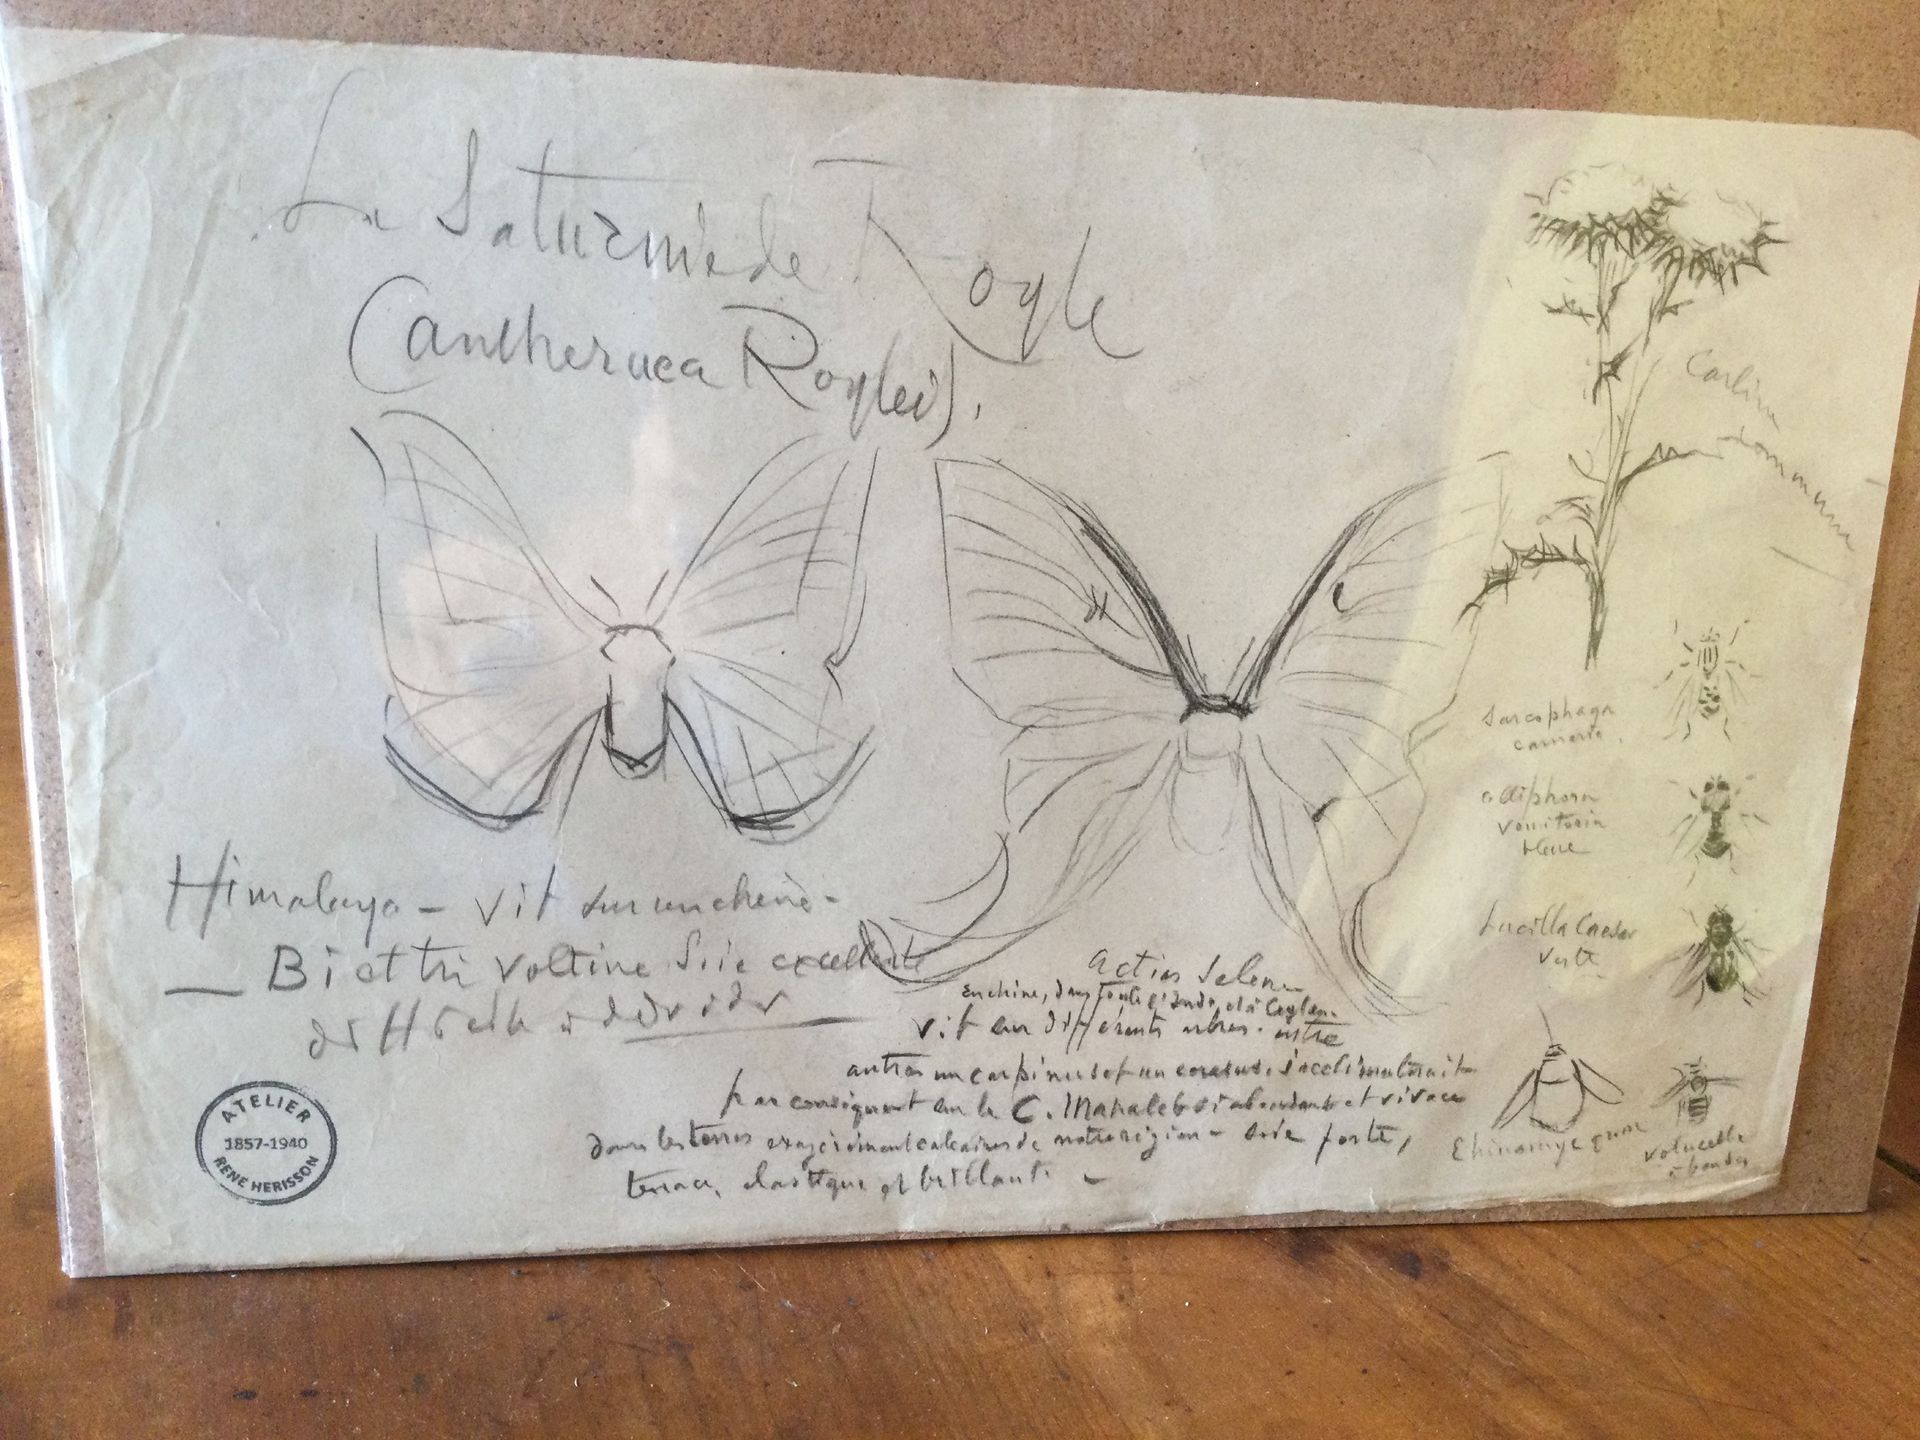 La Saturnie de Royle
(antheruea Roylei).
Carline
commune
Himalaya - vit sur un chêne -
Bi et tri voltine Soie excellente
Sarcophaga
carnaria
calliphora
vomitoria
bleue
Lucilla Caesar
verte
Actias Selene
en chine, dans toute l'Inde, et à Ceylan.
vit sur différents arbres. entre
autres un carpinus et un cerasus. s'acclimaterait
par conséquent sur le C. Mahaleb si abondant et vivace
dans les terres calcaires de notre région - soie forte,
tenace, élastique et brillante -
Echinomye
volucelle
à bandes
ATELIER
1857-1940
RENE HERISSON